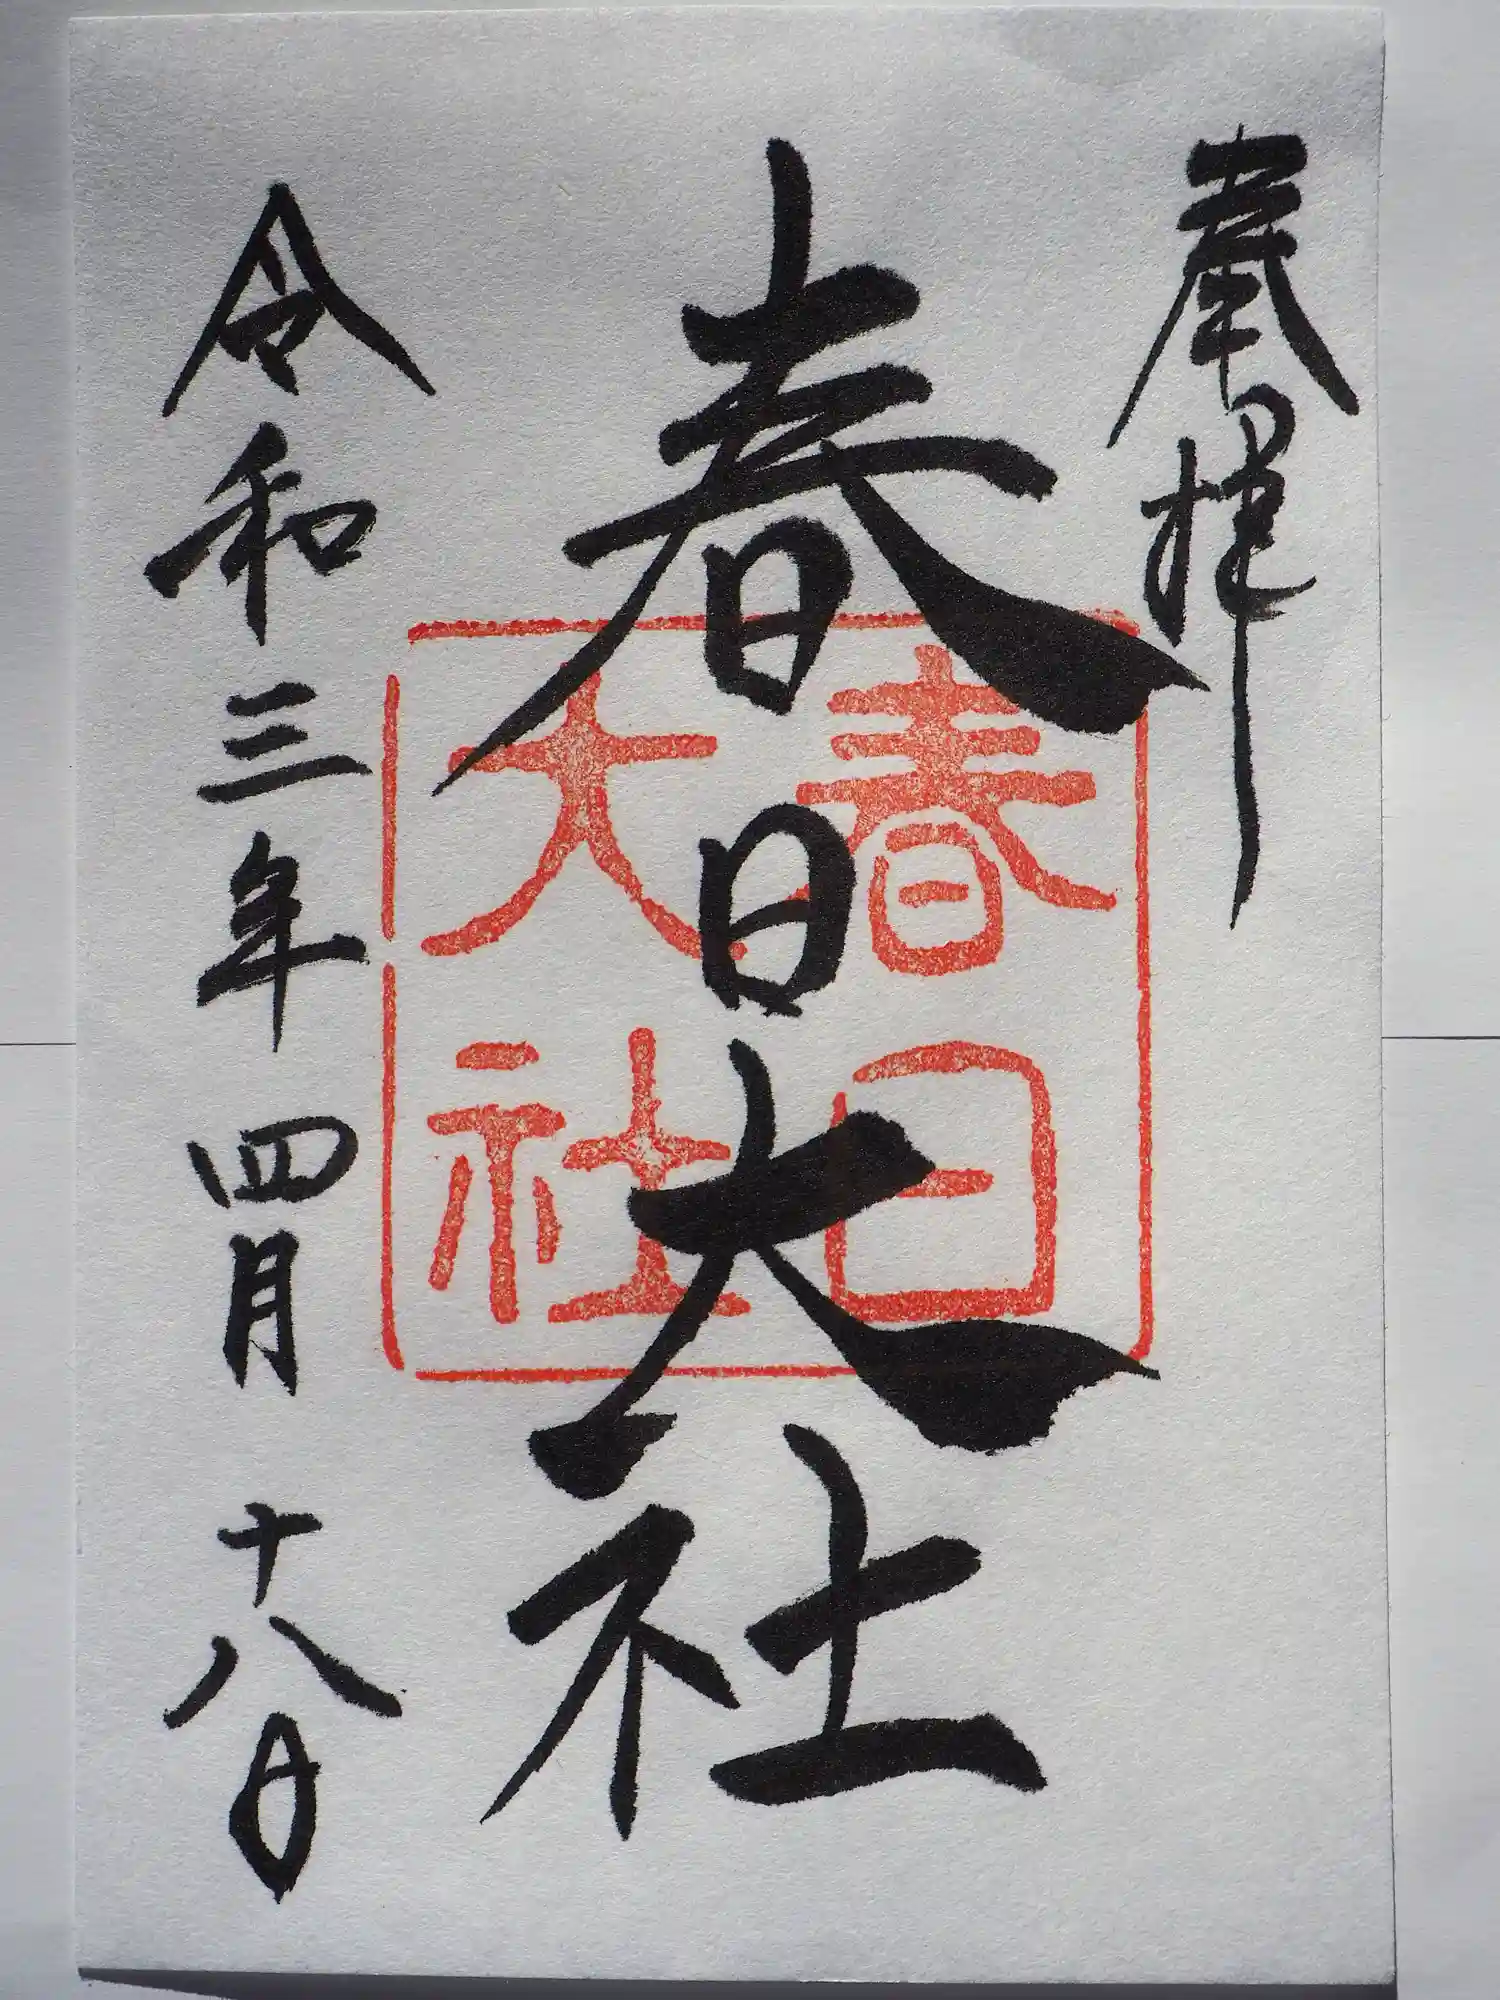 奉拝
春日大社
春日
大社
令和三年四月十八日